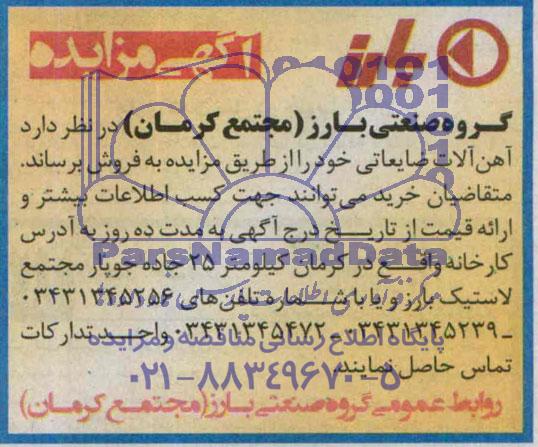 بارز
آگهی مزایده
گروه صنعتی بارز (مجتمع کرمان) در نظر دارد
آهن آلات ضایعاتی خود را از طریق مزایده به فروش برساند.
متقاضیان خرید می‌توانند جهت کسب اطلاعات بیشتر و
ارائه قیمت از تاریخ درج آگهی به مدت ده روز به آدرس
کارخانه واقع در کرمان کیلومتر ۲۵ جاده جوپار مجتمع
لاستیک بارز و یا با شماره تلفن های ۰۳۴۳۱۳۴۵۲۵۶
ـ ۰۳۴۳۱۳۴۵۲۳۹ - ۰۳۴۳۱۳۴۵۴۷۲ واحد تدارکات
تماس حاصل نمایند.
روابط عمومی گروه صنعتی بارز (مجتمع کرمان)
ParsNamadData
پایگاه اطلاع رسانی مناقصه و مزایده
۰۲۱-۸۸۳۴۹۶۷۰-۵